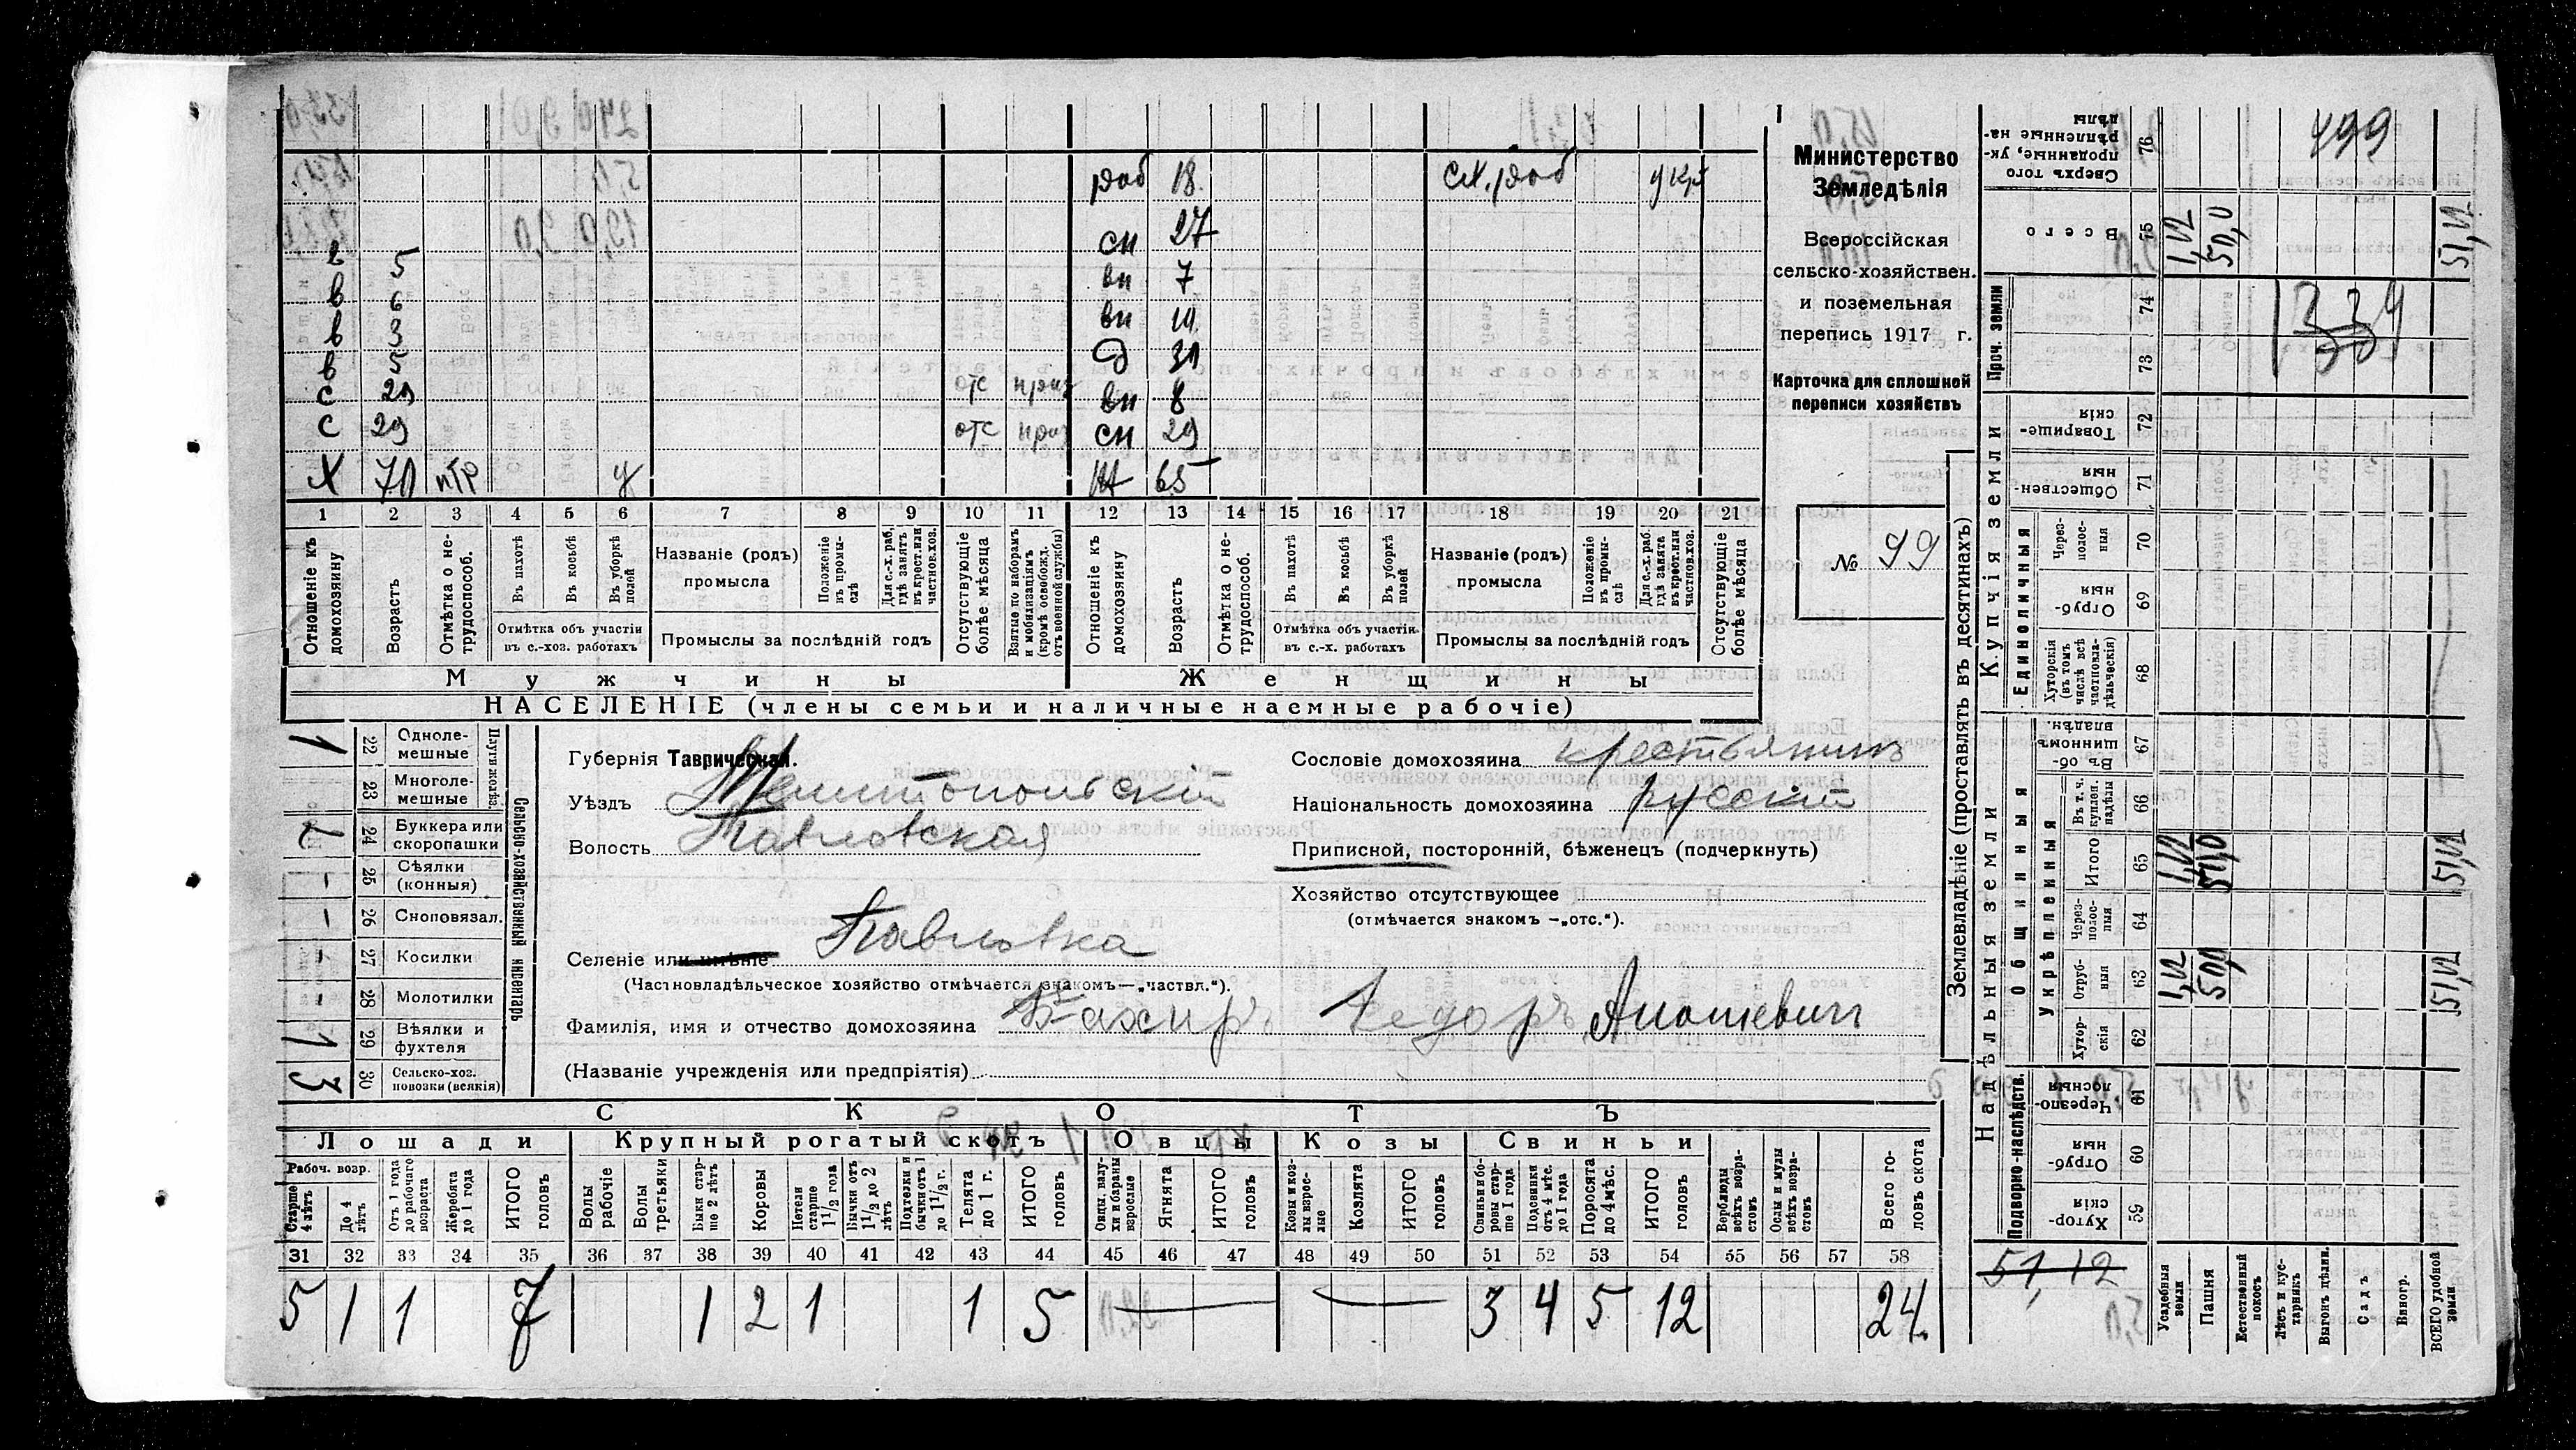 раб 18. сх. раб укр
сн 27
в 5 вн 7
в 6 вн 10
в 3 д 30
в 5 вн 8
с 29 отс приз
с 29 отс приз сн 29
Х 70 нтр у 65
1 2 3 4 5 6 7 8 9 10 11 12 13 14 15 16 17 18 19 20 21
Отношеніе къ домохозяину
Возрастъ
Отмѣтка о нетрудоспособ.
Въ пахотѣ
Въ косьбѣ
Въ уборкѣ полей
Отмѣтка объ участіи въ с.-хоз. работахъ
Названіе (родъ) промысла
Положеніе въ промыслѣ
Для с.-х. раб. гдѣ занятъ въ крест. или частнов. хоз.
Промыслы за послѣдній годъ
Отсутствующіе болѣе мѣсяца
Взятые по наборамъ и мобилизаціямъ (кромѣ освобожд. отъ военной службы)
Отношеніе къ домохозяину
Возрастъ
Отмѣтка о нетрудоспособ.
Въ пахотѣ
Въ косьбѣ
Въ уборкѣ полей
Отмѣтка объ участіи въ с.-х. работахъ
Названіе (родъ) промысла
Положеніе въ промыслѣ
Для с.-х. раб. гдѣ занята въ крест. или частнов. хоз.
Промыслы за послѣдній годъ
Отсутствующіе болѣе мѣсяца
Мужчины Женщины
НАСЕЛЕНІЕ (члены семьи и наличные наемные рабочіе)
Министерство
Земледѣлія
Всероссійская
сельско-хозяйствен.
и поземельная
перепись 1917 г.
Карточка для сплошной
переписи хозяйствъ
№ 99
Сельско-хозяйственный инвентарь
Плуги желѣз.
22 Однолемешные 1
23 Многолемешные
24 Буккера или скоропашки 2
25 Сѣялки (конныя) –
26 Сноповязал. –
27 Косилки –
28 Молотилки –
29 Вѣялки и фухтеля 1
30 Сельско-хоз. повозки (всякія) 3
Губернія Таврическая.
Уѣздъ Мелитопольскій
Волость Павловская
Селеніе или имѣніе Павловка
(Частновладѣльческое хозяйство отмѣчается знакомъ—„частвл.“).
Фамилія, имя и отчество домохозяина Федоръ
(Названіе учрежденія или предпріятія)
Сословіе домохозяина крестьянинъ
Національность домохозяина русскій
Приписной, посторонній, бѣженецъ (подчеркнуть)
Хозяйство отсутствующее
(отмѣчается знакомъ –„отс.“).
СКОТЪ
Лошади Крупный рогатый скотъ Овцы Козы Свиньи
Рабоч. возр.
Старше 4 лѣтъ
До 4 лѣтъ
Отъ 1 года до рабочаго возраста
Жеребята до 1 года
ИТОГО головъ
Волы рабочіе
Волы третьяки
Быки старше 2 лѣтъ
Коровы
Нетели старше 1 1/2 года
Бычки отъ 1 1/2 до 2 лѣтъ
Подтелки и бычки отъ 1 до 1 1/2 г.
Телята до 1 г.
ИТОГО головъ
Овцы, валухи и бараны взрослые
Ягнята
ИТОГО головъ
Козы и козлы взрослые
Козлята
ИТОГО головъ
Свиньи и боровы старше 1 года
Подсвинки отъ 4 мѣс. до 1 года
Поросята до 4 мѣс.
ИТОГО головъ
Верблюды всѣхъ возрастовъ
Ослы и мулы всѣхъ возрастовъ
Всего головъ скота
31 32 33 34 35 36 37 38 39 40 41 42 43 44 45 46 47 48 49 50 51 52 53 54 55 56 57 58
5 1 1 7 1 2 1 1 5 — — 3 4 5 12 24.
Землевладѣніе (проставлять въ десятинахъ)
Надѣльныя земли Купчія земли Проч. земли
Подворно-наслѣдств.
Общинныя
Укрѣпленныя
Единоличныя
Хуторскія 59
Отрубныя 60
Черезполосныя 61
Хуторскія 62
Отрубныя 63 1,12 50,0 51,12
Черезполосныя 64
Итого 65 1,12 50,0 51,12
Въ т. ч. куплен. надѣлы 66
Въ общинномъ владѣн. 67
Хуторскія (въ томъ числѣ всѣ частновладѣльческія) 68
Отрубныя 69
Черезполосныя 70
Общественныя 71
Товарищескія 72
73
74
Всего 75 1,12 50,0 51,12
Сверхъ того проданные, укрѣпленные надѣлы 76
499
1339
51,12
Усадебныя земли
Пашня
Естественный покосъ
Лѣсъ и кустарникъ
Выгонъ цѣлин.
Садъ
Виногр.
ВСЕГО удобной земли